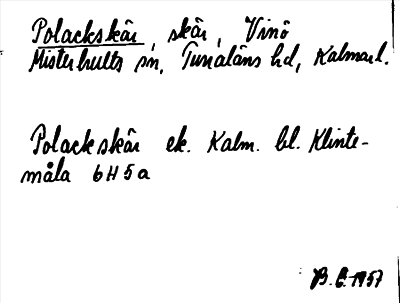 Polackskär, skär, Vinö
Misterhults sn, Tunaläns hd, Kalmar l.
Polackskär ek. Kalm. bl. Klinte-
måla 6H5a
B.E. 1957